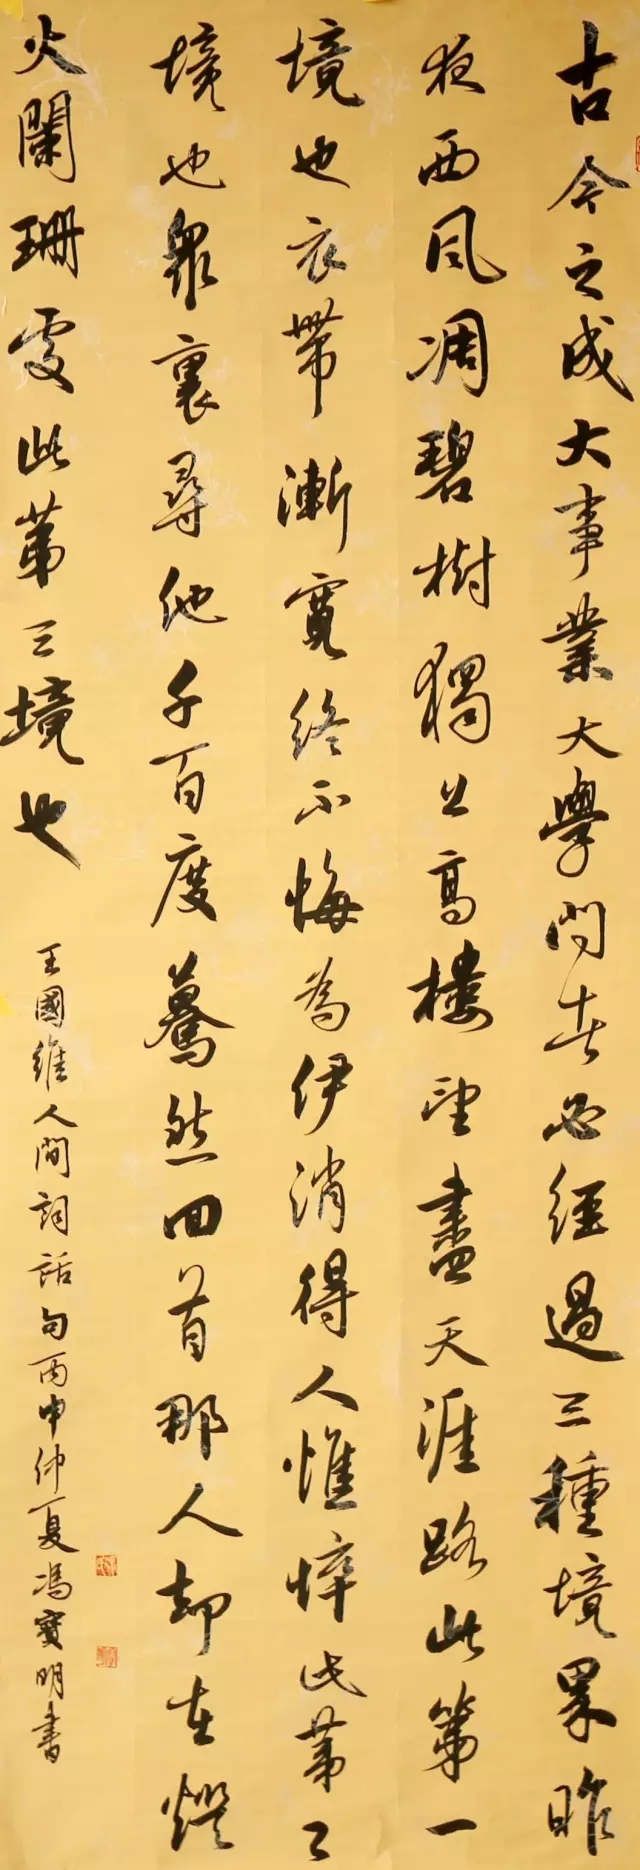 古今之成大事業大學問者必經過三種境界昨
夜西風凋碧樹獨上高樓望盡天涯路此第一
境也衣帶漸寬終不悔為伊消得人憔悴此第二
境也眾裏尋他千百度驀然回首那人卻在燈
火闌珊處此第三境也
王國維人間詞話句丙申仲夏馮寶明書